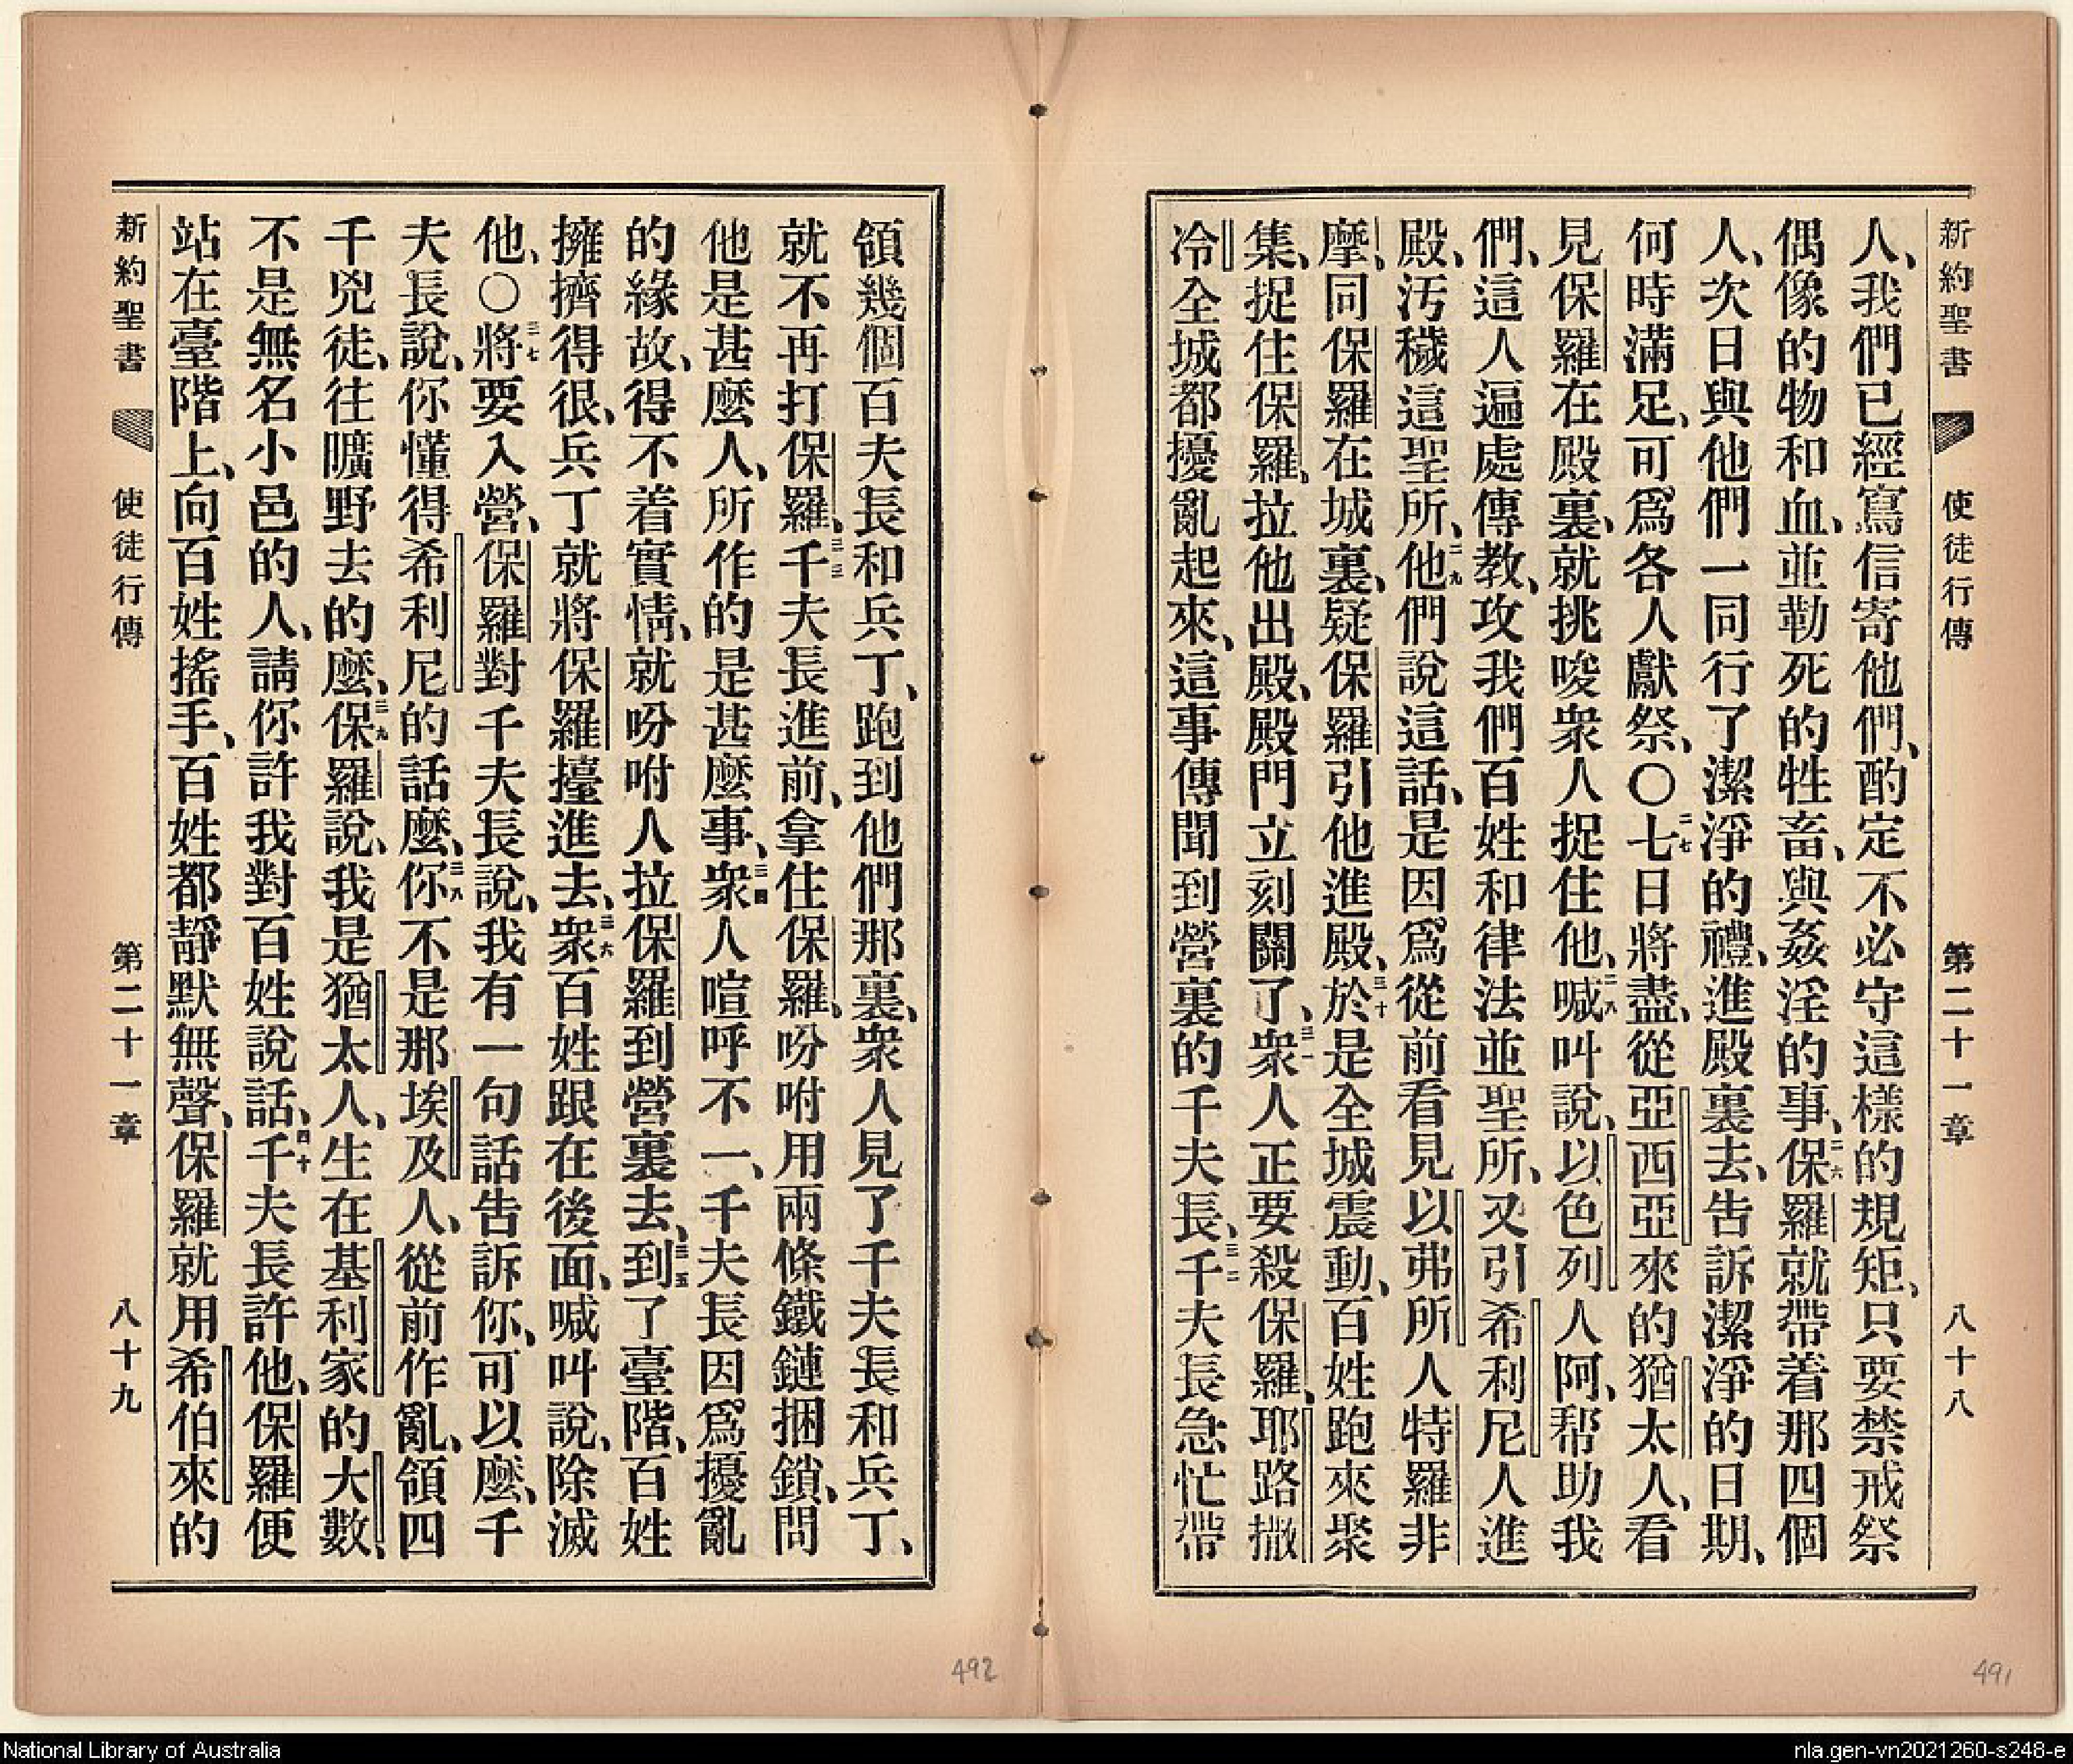 新約聖書 使徒行傳 第二十一章 八十八
人、我們已經寫信寄他們、酌定不必守這樣的規矩、只要禁戒祭
偶像的物和血、並勒死的牲畜、與姦淫的事、二六保羅就帶着那四個
人、次日與他們一同行了潔淨的禮、進殿裏去、告訴潔淨的日期、
何時滿足、可爲各人獻祭、〇二七七日將盡、從亞西亞來的猶太人、看
見保羅在殿裏、就挑唆衆人捉住他、二八喊叫說、以色列人阿、帮助我
們、這人遍處傳教、攻我們百姓和律法並聖所、又引希利尼人進
殿、汚穢這聖所、二九他們說這話、是因爲從前看見以弗所人特羅非
摩、同保羅在城裏、疑保羅引他進殿、三十於是全城震動、百姓跑來聚
集、捉住保羅、拉他出殿、殿門立刻關了、三一衆人正要殺保羅、耶路撒
冷全城都擾亂起來、這事傳聞到營裏的千夫長、三二千夫長急忙帶
領幾個百夫長和兵丁、跑到他們那裏、衆人見了千夫長和兵丁、
就不再打保羅、三三千夫長進前、拿住保羅、吩咐用兩條鐵鏈捆鎖、問
他是甚麽人、所作的是甚麽事、三四衆人喧呼不一、千夫長因爲擾亂
的緣故、得不着實情、就吩咐人拉保羅到營裏去、三五到了臺階、百姓
擁擠得很、兵丁就將保羅擡進去、三六衆百姓跟在後面、喊叫說、除滅
他、〇三七將要入營、保羅對千夫長說、我有一句話告訴你、可以麽、千
夫長說、你懂得希利尼的話麽、三八你不是那埃及人、從前作亂、領四
千兇徒、往曠野去的麽、三九保羅說、我是猶太人、生在基利家的大數、
不是無名小邑的人、請你許我對百姓說話、四十千夫長許他、保羅便
站在臺階上、向百姓搖手、百姓都靜默無聲、保羅就用希伯來的
新約聖書 使徒行傳 第二十一章 八十九
492
491
National Library of Australia
nla.gen-vn2021260-s248-e